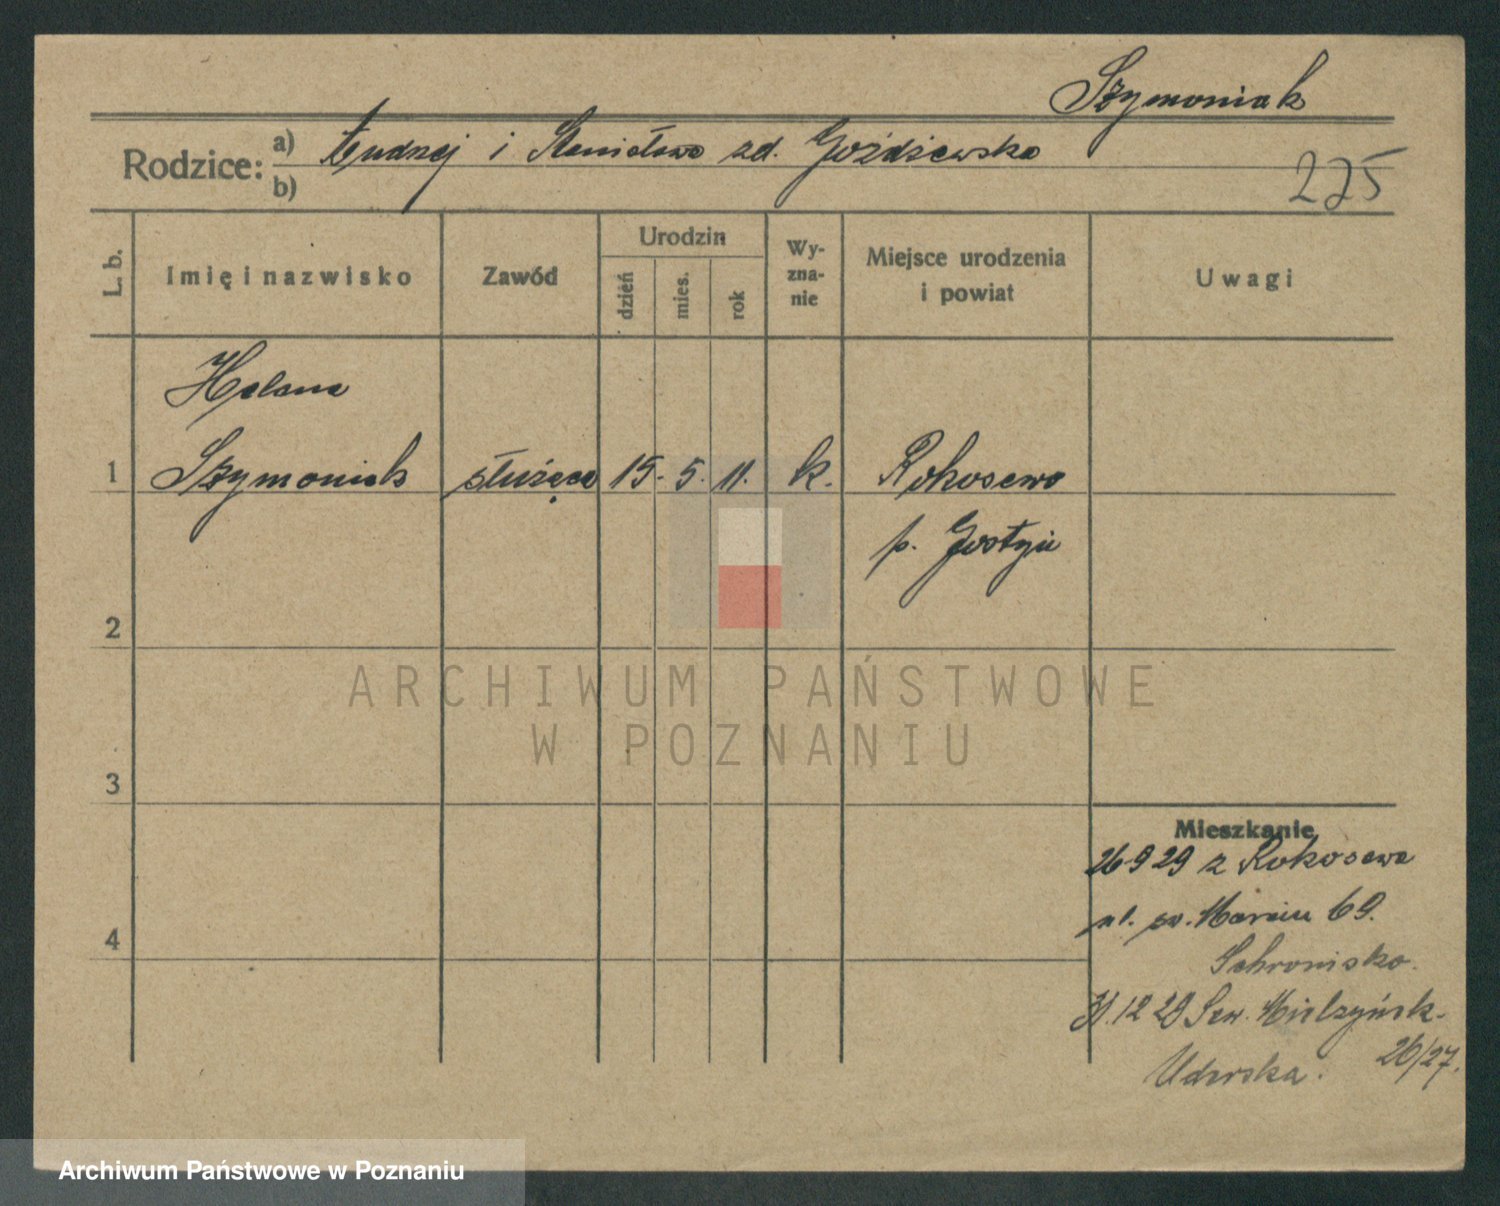 Szymoniak
Rodzice: a) Andrzej i Stanisława zd. Goździewska
b)
275
L. b.
Imię i nazwisko
Zawód
Urodzin
dzień
mies.
rok
Wy-
zna-
nie
Miejsce urodzenia
i powiat
Uwagi
Helena
1 Szymoniak służąca 15. 5. 11. k. Rokosowo
p. Gostyń
2
ARCHIWUM PAŃSTWOWE
W POZNANIU
3
Mieszkanie
26 9 29 z Rokosowa
ul. św. Marcin 69.
4
Schronisko.
12 29 Sew. Mielzyńsk.
26/27.
Uderska.
Archiwum Państwowe w Poznaniu